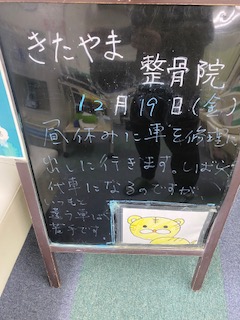 きたやま
整骨院
12月19日(金)
昼休みに車を修理に
出しに行きます。しばらく
代車になるのですが、
いつもと
違う車は
苦手です。